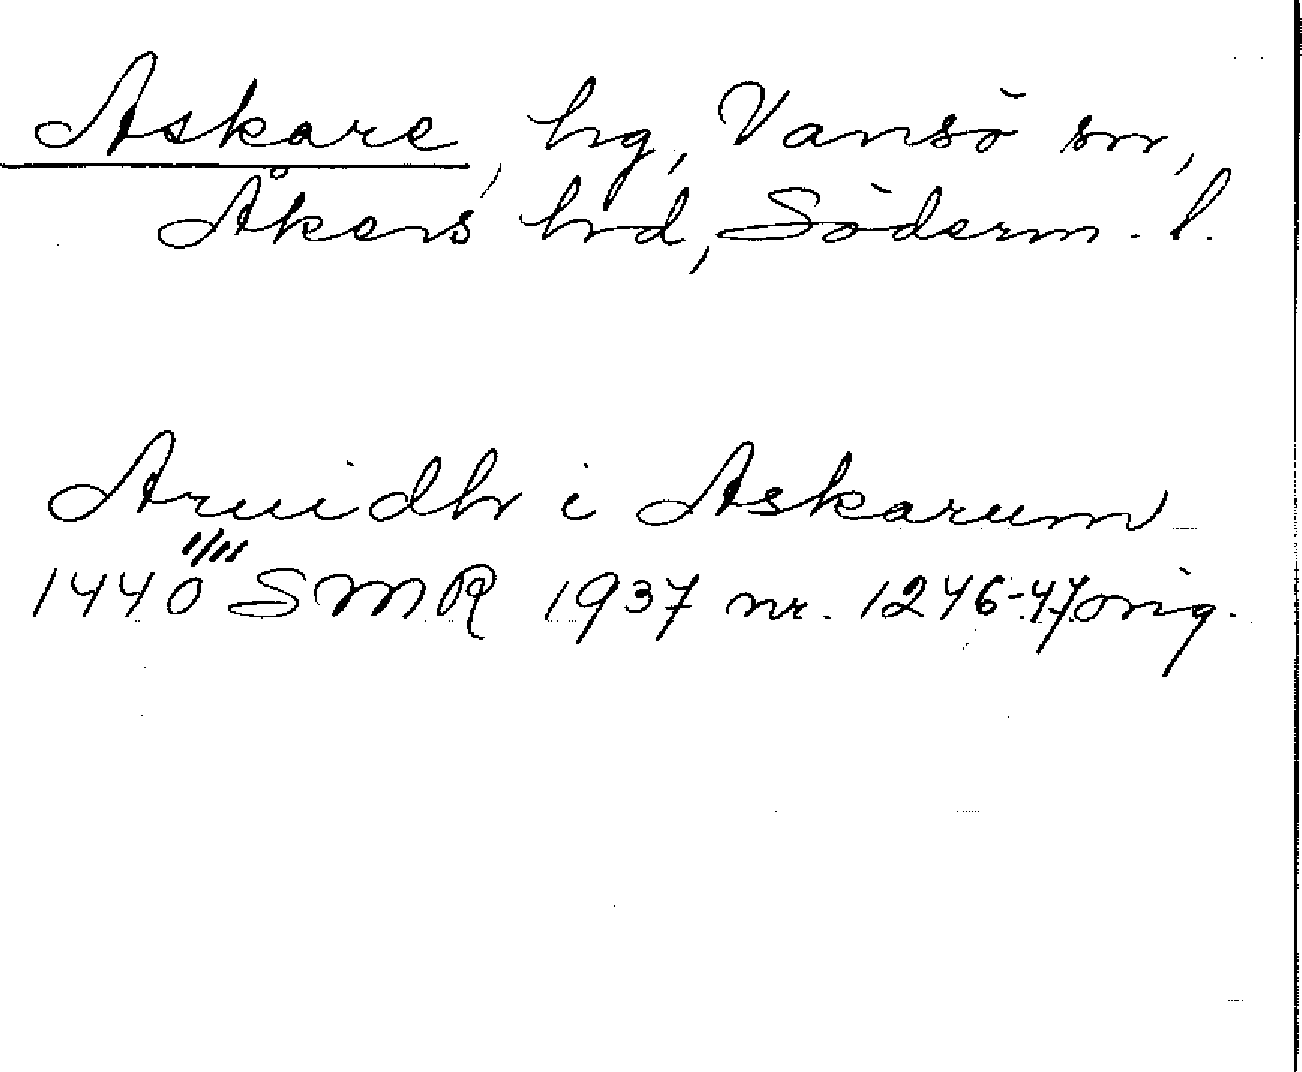 Askare, hg, Vansö sn,
Åkers hrd, Söderm. l.
Aruidh i Askarum
1440 1/11 SMR 1937 nr. 1246-47 orig.